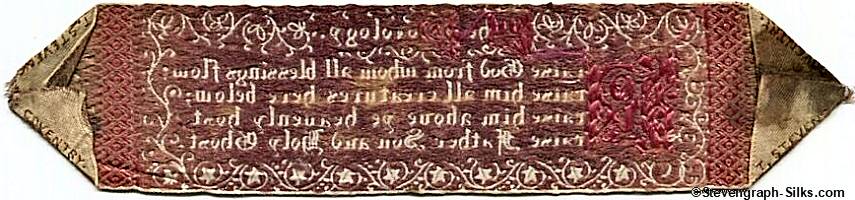 The Doxology
Praise God from whom all blessings flow:
raise him all creatures here below;
raise him above ye heavenly host
raise Father, Son and Holy Ghost
COVENTRY
T. STEVEN
©Stevengraph-Silks.com